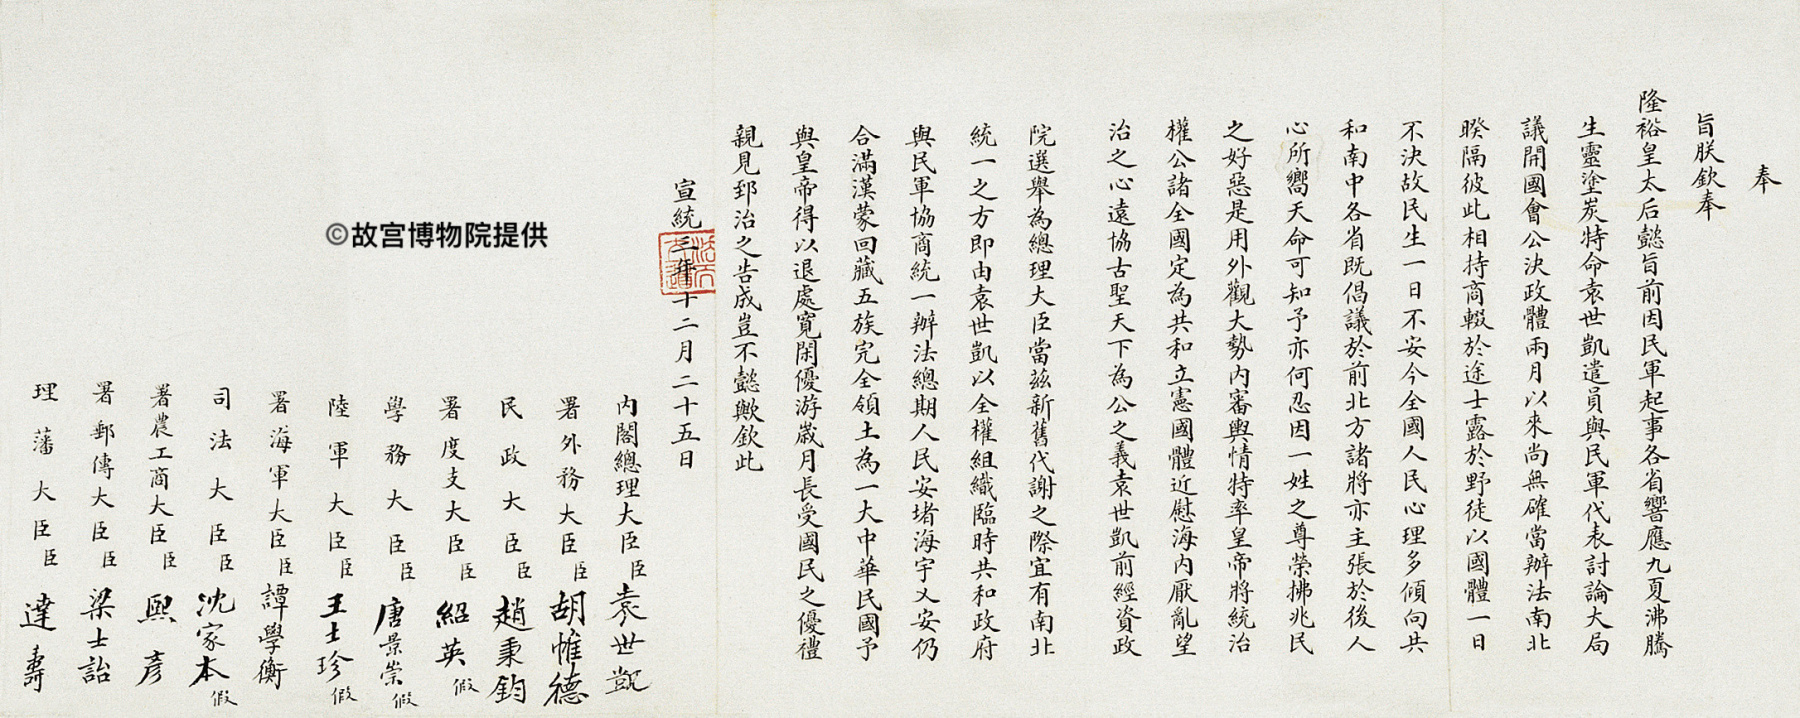 奉
旨朕欽奉
隆裕皇太后懿旨前因民軍起事各省響應九夏沸騰
生靈塗炭特命袁世凱遣員與民軍代表討論大局
議開國會公決政體兩月以來尚無確當辦法南北
暌隔彼此相持商輟於途士露於野徒以國體一日
不決故民生一日不安今全國人民心理多傾向共
和南中各省既倡議於前北方諸將亦主張於後人
心所嚮天命可知予亦何忍因一姓之尊榮拂兆民
之好惡是用外觀大勢內審輿情特率皇帝將統治
權公諸全國定為共和立憲國體近慰海內厭亂望
治之心遠協古聖天下為公之義袁世凱前經資政
院選舉為總理大臣當茲新舊代謝之際宜有南北
統一之方即由袁世凱以全權組織臨時共和政府
與民軍協商統一辦法總期人民安堵海宇乂安仍
合滿漢蒙回藏五族完全領土為一大中華民國予
與皇帝得以退處寬閑優游歲月長受國民之優禮
親見郅治之告成豈不懿歟欽此
宣統三年十二月二十五日
法天立道
內閣總理大臣臣袁世凱
署外務大臣臣胡惟德
民政大臣臣趙秉鈞
署度支大臣臣紹英假
學務大臣臣唐景崇假
陸軍大臣臣王士珍假
署海軍大臣臣譚學衡
司法大臣臣沈家本假
署農工商大臣臣熙彥
署郵傳大臣臣梁士詒
理藩大臣臣達壽
©故宫博物院提供